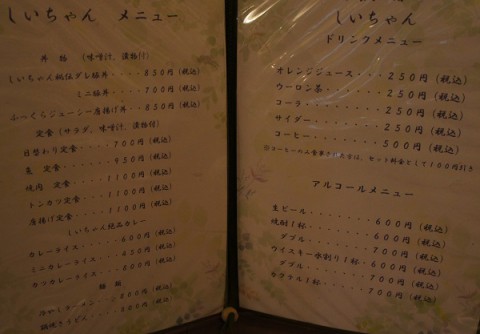 しいちゃん メニュー
丼 類 (味噌汁、漬物付)
しいちゃん秘伝ダレ豚丼・・・・850円(税込)
ミニ豚丼・・・・700円(税込)
ふっくらジューシー唐揚げ丼・・850円(税込)
定食(サラダ、味噌汁、漬物付)
日替わり定食・・・・700円(税込)
魚 定食・・・・950円(税込)
焼肉 定食・・・・1100円(税込)
トンカツ定食・・・・1100円(税込)
唐揚げ定食・・・・1100円(税込)
しいちゃん絶品カレー
カレーライス・・・・600円(税込)
ミニカレーライス・・・・450円(税込)
カツカレーライス・・・・800円(税込)
麺 類
800円(税込)
鍋焼きうどん
しいちゃん
ドリンクメニュー
オレンジジュース・・・・250円(税込)
ウーロン茶・・・・250円(税込)
コーラ・・・・250円(税込)
サイダー・・・・250円(税込)
コーヒー・・・・500円(税込)
セット料金として100円引き
アルコールメニュー
生ビール・・・・600円(税込)
焼酎1杯・・・・600円(税込)
ダブル・・・・700円(税込)
ウイスキー水割り1杯・・600円(税込)
ダブル・・・・700円(税込)
カクテル1杯・・・・700円(税込)